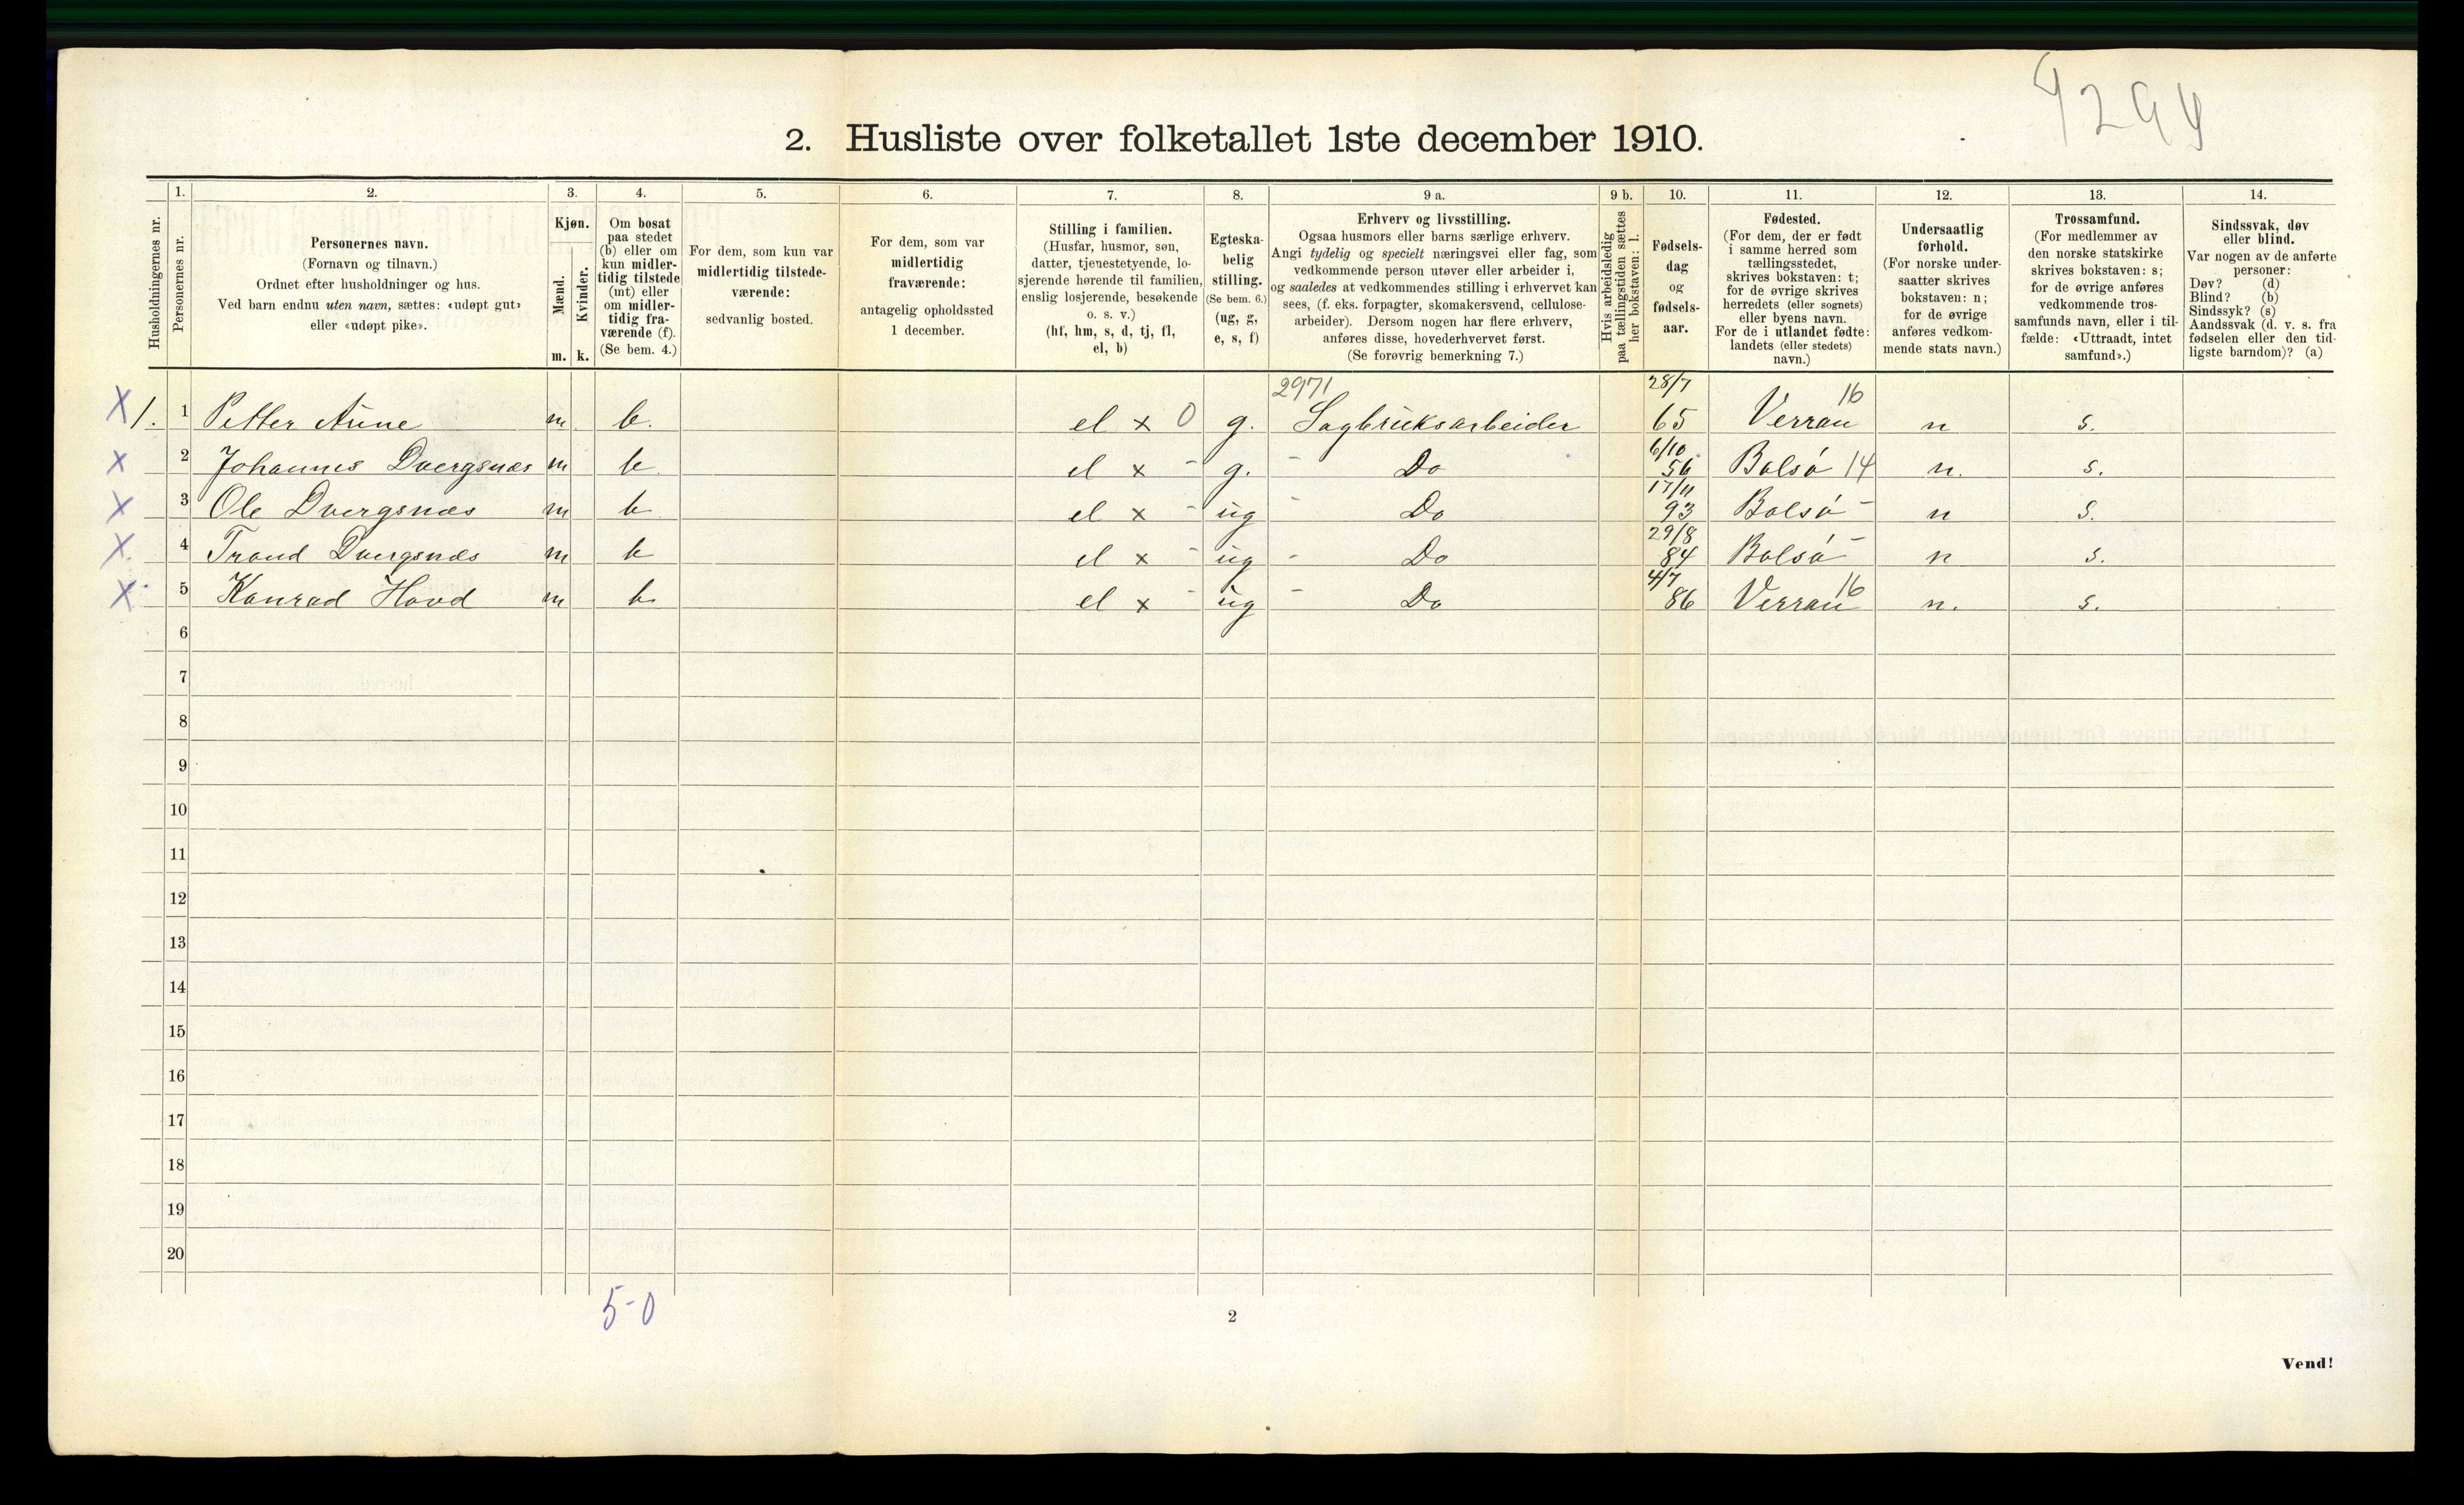 9294
2. Husliste over folketallet 1ste december 1910.
Husholdningernes nr.
1. Personernes nr.
2. Personernes navn. (Fornavn og tilnavn.) Ordnet efter husholdninger og hus. Ved barn endnu uten navn, sættes: «udøpt gut» eller «udøpt pike».
3. Kjøn. Mænd. m. Kvinder. k.
4. Om bosat paa stedet (b) eller om kun midlertidig tilstede (mt) eller om midlertidig fraværende (f). (Se bem. 4.)
5. For dem, som kun var midlertidig tilstedeværende: sedvanlig bosted.
6. For dem, som var midlertidig fraværende: antagelig opholdssted 1 december.
7. Stilling i familien. (Husfar, husmor, søn, datter, tjenestetyende, losjerende hørende til familien, enslig losjerende, besøkende o. s. v.) (hf, hm, s, d, tj, fl, el, b)
8. Egteskabelig stilling. (Se bem. 6.) (ug, g, e, s, f)
9 a. Erhverv og livsstilling. Ogsaa husmors eller barns særlige erhverv. Angi tydelig og specielt næringsvei eller fag, som vedkommende person utøver eller arbeider i, og saaledes at vedkommendes stilling i erhvervet kan sees, (f. eks. forpagter, skomakersvend, cellulosearbeider). Dersom nogen har flere erhverv, anføres disse, hovederhvervet først. (Se forøvrig bemerkning 7.)
9 b. Hvis arbeidsledig paa tællingstiden sættes her bokstaven: l.
10. Fødselsdag og fødselsaar.
11. Fødested. (For dem, der er født i samme herred som tællingsstedet, skrives bokstaven: t; for de øvrige skrives herredets (eller sognets) eller byens navn. For de i utlandet fødte: landets (eller stedets) navn.)
12. Undersaatlig forhold. (For norske undersaatter skrives bokstaven: n; for de øvrige anføres vedkommende stats navn.)
13. Trossamfund. (For medlemmer av den norske statskirke skrives bokstaven: s; for de øvrige anføres vedkommende trossamfunds navn, eller i tilfælde: «Uttraadt, intet samfund».)
14. Sindssvak, døv eller blind. Var nogen av de anførte personer: Døv? (d) Blind? (b) Sindssyk? (s) Aandssvak (d. v. s. fra fødselen eller den tidligste barndom)? (a)
X 1. 1 Petter Aune m b. el x 0 g. 2971 Sagbruksarbeider 28/7 65 Verran 16 n s.
x 2 Johannes Dvergsnæs m b el x - g. - Do 6/10 56 Bolsö 14 n. s.
x 3 Ole Dvergsnæs m b el x - ug - Do 17/11 93 Bolsö - n s.
x 4 Trond Dvergsnæs m b el x - ug - Do 29/8 84 Bolsö - n s.
x 5 Konrad Hovd m b el x - ug - Do 4/7 86 Verran 16 n. s.
6
7
8
9
10
11
12
13
14
15
16
17
18
19
20
5-0
2
Vend!